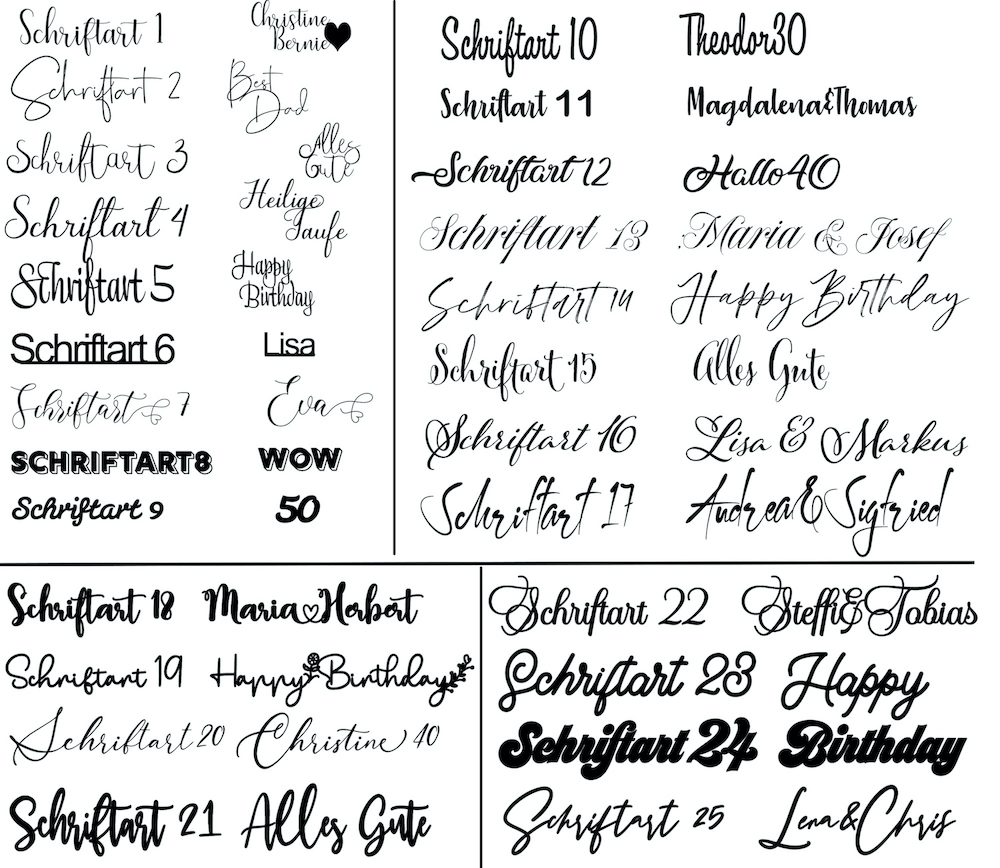 Schriftart 1
Christine
Bernie
Schriftart 2
Best
Dad
Schriftart 3
Alles
Gute
Schriftart 4
Heilige
Taufe
Schriftart 5
Happy
Birthday
Schriftart 6
Lisa
Schriftart 7
Eva
SCHRIFTART8
WOW
Schriftart 9
50
Schriftart 10 Theodor30
Schriftart 11 Magdalena&Thomas
Schriftart 12 Hallo40
Schriftart 13 Maria & Josef
Schriftart 14 Happy Birthday
Schriftart 15 Alles Gute
Schriftart 16 Lisa & Markus
Schriftart 17 Andrea&Sigfried
Schriftart 18 Maria Herbert
Schriftart 19 Happy Birthday
Schriftart 20 Christine 40
Schriftart 21 Alles Gute
Schriftart 22 Steffi&Tobias
Schriftart 23 Happy
Schriftart 24 Birthday
Schriftart 25 Lena&Chris